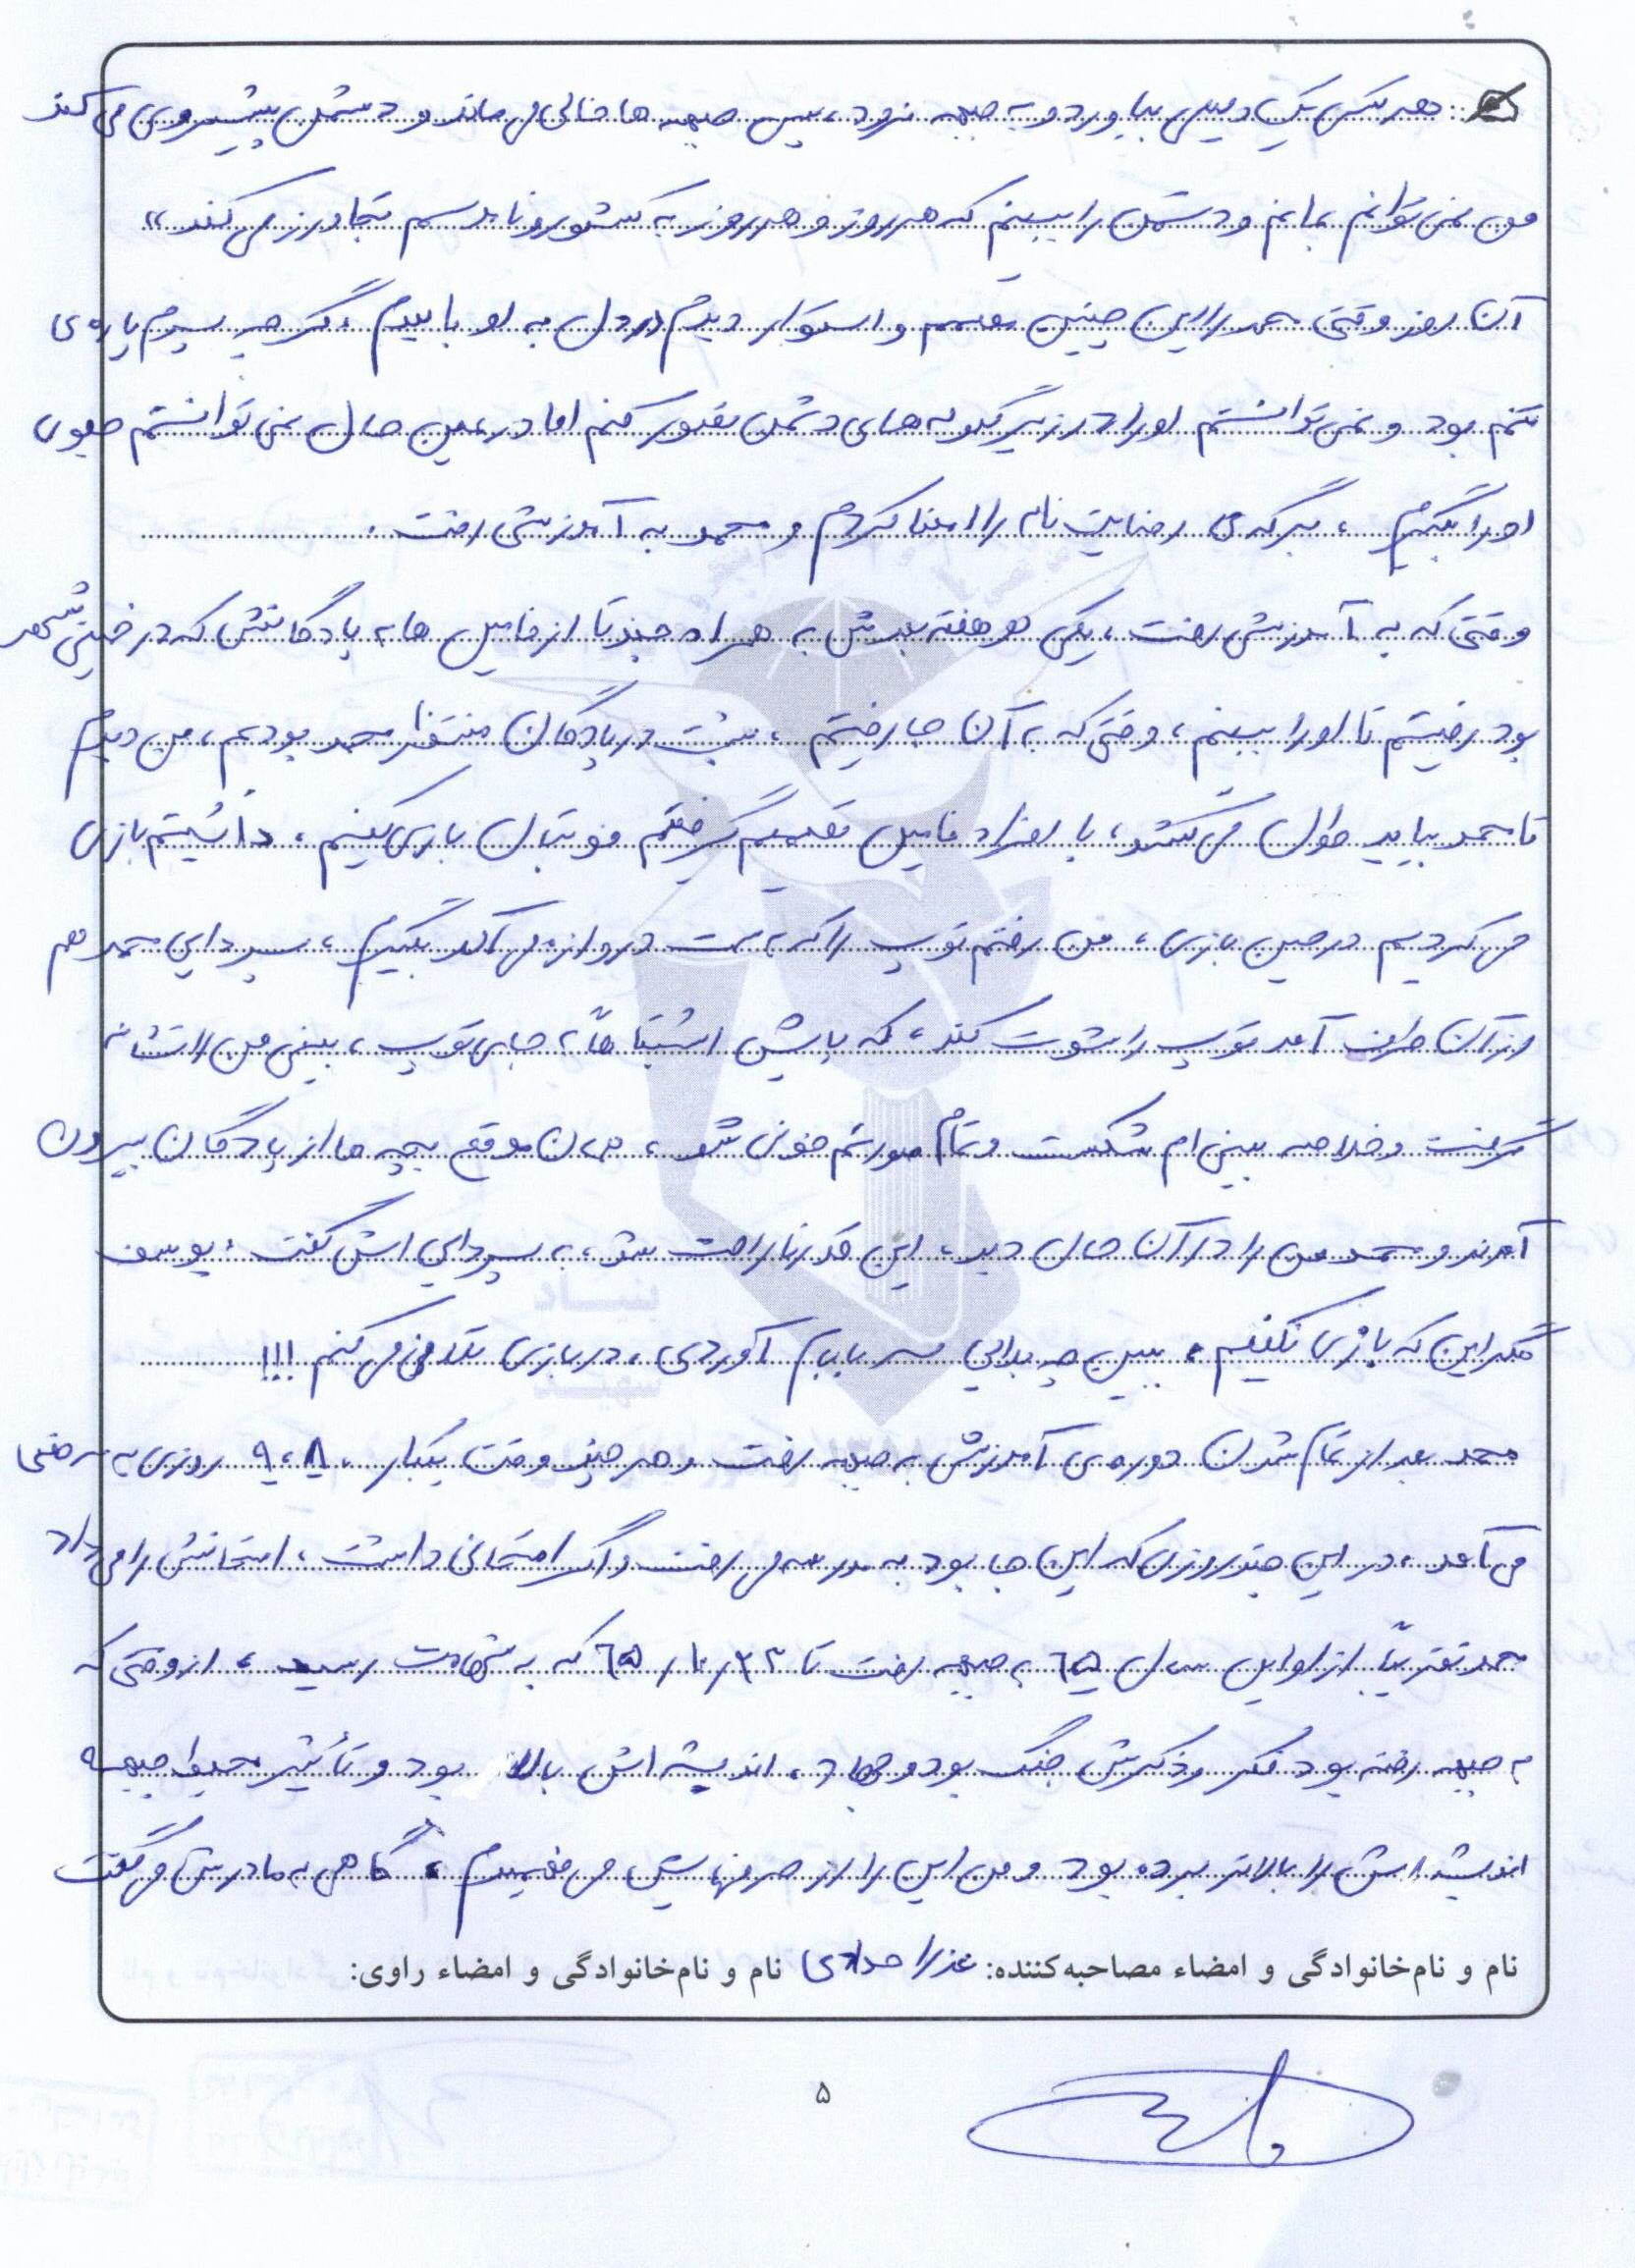 هر کس یک دلیلی بیاورد و به جبهه نرود، پس جبهه ها خالی می ماند و دشمن پیشروی می کند
من نمی توانم بمانم و دشمن را ببینم که هر روز و هر روز به کشور و ناموسم تجاوز می کند»
آن روز وقتی محمد را این چنین مصمم و استوار دیدم در دل به او بالیدم، گرچه پسرم پاره ی
تنم بود و نمی توانستم او را در زیر گلوله های دشمن تصور کنم اما در عین حال نمی توانستم جلوی
او را بگیرم، برگه ی رضایت نام را امضا کردم و محمد به آموزشی رفت.
وقتی که به آموزش رفت، یکی دو هفته بعدش به همراه چند تا از فامیل ها به پادگانش که در خمینی شهر
بود رفتیم تا او را ببینم، وقتی که به آن جا رفتیم، پشت در پادگان منتظر محمد بودیم، من دیدم
تا محمد بیاید طول می کشد، با افراد فامیل تصمیم گرفتم فوتبال بازی کنیم، داشتیم بازی
می کردیم در حین بازی، من رفتم توپ را که به سمت دروازه می آمد بگیرم، پسر دایی محمد هم
از آن طرف آمد توپ را شوت کند، که پایش اشتباهاً به جای توپ، بینی من را نشانه
گرفت و خلاصه بینی ام شکست و تمام صورتم خونی شد، همان موقع بچه ها از پادگان بیرون
آمدند و محمد من را در آن حال دید، این قدر ناراحت شد، به پسر دایی اش گفت: یوسف
مگر این که بازی نکنیم، ببین چه بلایی سر بابام آوردی، در بازی تلافی می کنم !!!
محمد بعد از تمام شدن دوره ی آموزش به جبهه رفت و هر چند وقت یکبار، ۸، ۹ روزی به مرخصی
می آمد، در این چند روزی که این جا بود به مدرسه می رفت و اگر امتحانی داشت، امتحانش را می داد
محمد تقریباً از اوایل سال ۶۵ به جبهه رفت تا ۶۵/۱۰/۲۳ که به شهادت رسید، از وقتی که
به جبهه رفته بود فکر و ذکرش جنگ بود و جهاد، اندیشه اش بالا بود و تأثیر محیط جبهه
اندیشه اش را بالاتر برده بود و من این را از حرفهایش می فهمیدم، گاهی به مادرش می گفت
نام و نام‌خانوادگی و امضاء مصاحبه‌کننده: عذرا حدادی نام و نام‌خانوادگی و امضاء راوی:
۵